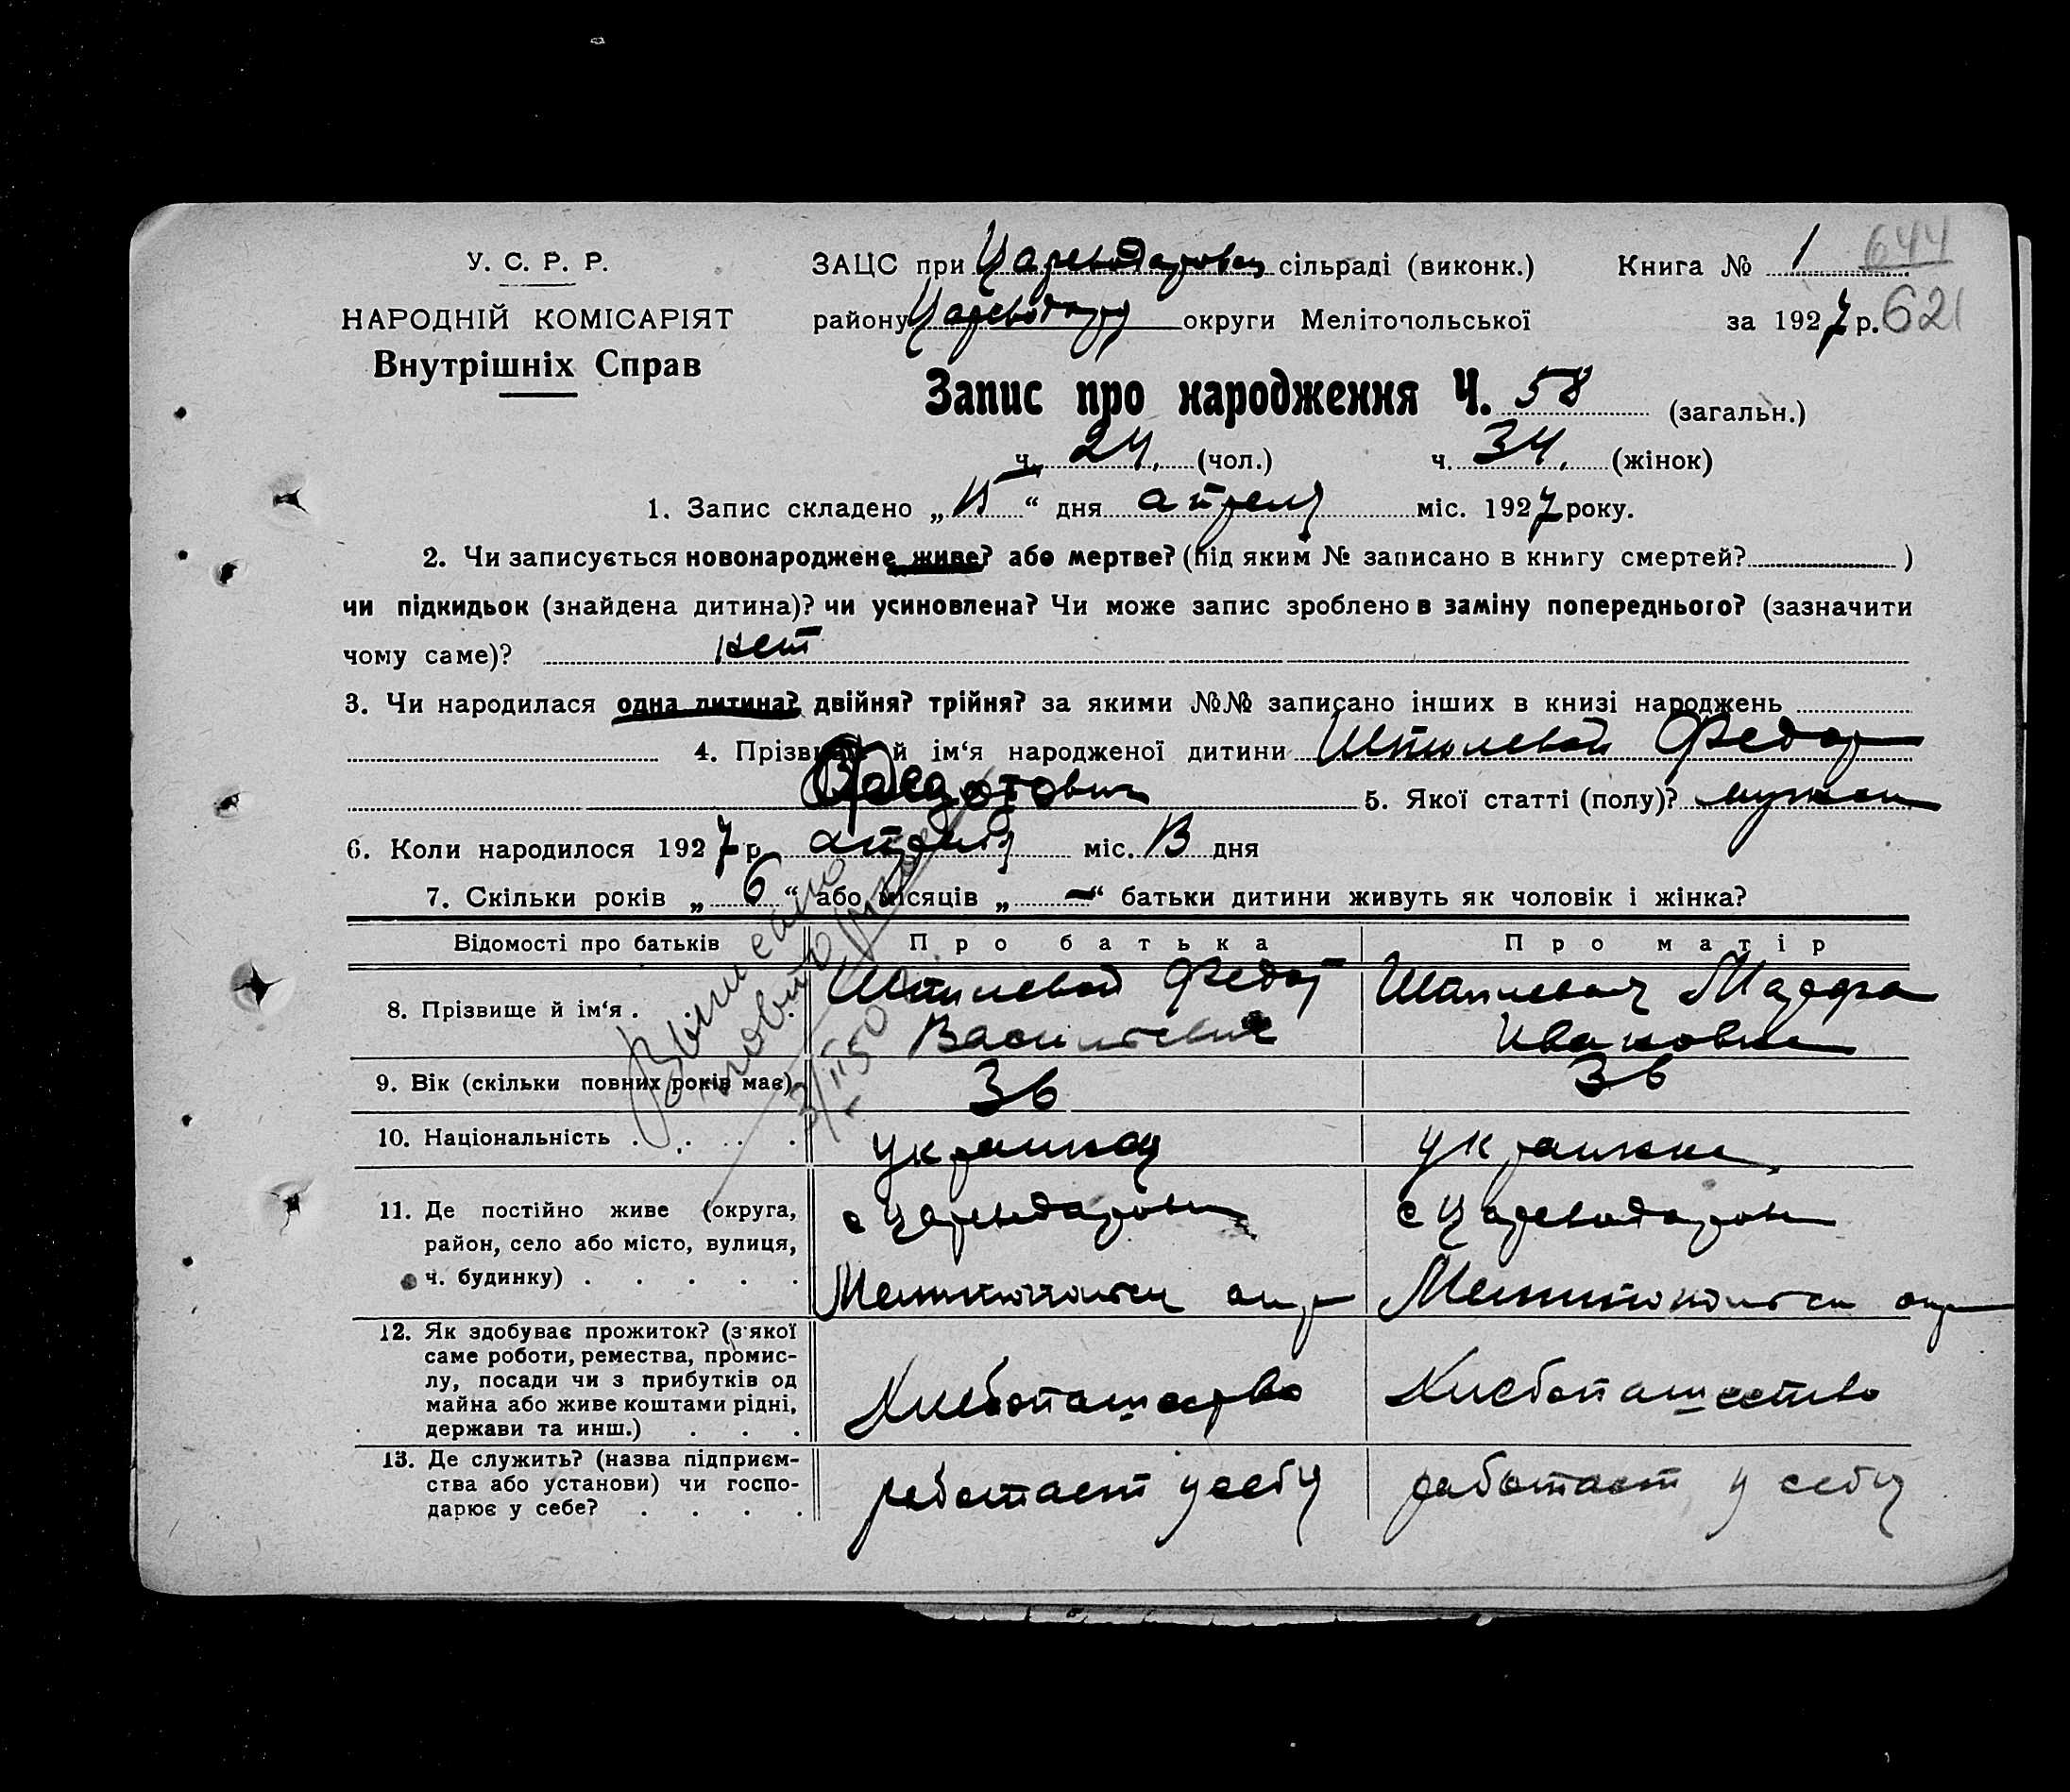 У. С. Р. Р.
НАРОДНІЙ КОМІСАРІЯТ
Внутрішніх Справ
ЗАЦС при Цареводаровск сільраді (виконк.) Книга № 1 644
району округи Мелітопольської за 1927 р. 621
Запис про народження Ч. 58 (загальн.)
ч. 24. (чол.) ч. 34. (жінок)
1. Запис складено „ “ дня апреля міс. 1927 року.
2. Чи записується новонароджене живе? або мертве? (під яким № записано в книгу смертей? )
чи підкидьок (знайдена дитина)? чи усиновлена? Чи може запис зроблено в заміну попереднього? (зазначити
чому саме)? нет
3. Чи народилася одна дитина? двійня? трійня? за якими №№ записано інших в книзі народжень
4. Прізвище й ім‘я народженої дитини Штилевой Федор
Федотович 5. Якої статті (полу)? мужск
6. Коли народилося 1927 р. апреля міс. дня
7. Скільки років „ 6 “ або місяців „ — “ батьки дитини живуть як чоловік і жінка?
Відомості про батьків Про батька Про матір
8. Прізвище й ім‘я . Штилевой Федот Васильевич Ивановна
9. Вік (скільки повних років має) 36 36
10. Національність . . . . украинец украинка
11. Де постійно живе (округа,
район, село або місто, вулиця,
ч. будинку) . . . . .
с Цареводаровк с Цареводаровк
Мелитопольск окр Мелитопольск окр
12. Як здобуває прожиток? (з'якої
саме роботи, ремества, промис-
лу, посади чи з прибутків од
майна або живе коштами рідні,
держави та инш.) . . .
Хлебопашество Хлебопашество
13. Де служить? (назва підприєм-
ства або установи) чи госпо-
дарює у себе? . . . .
работает у себя работает у себя
Выписано